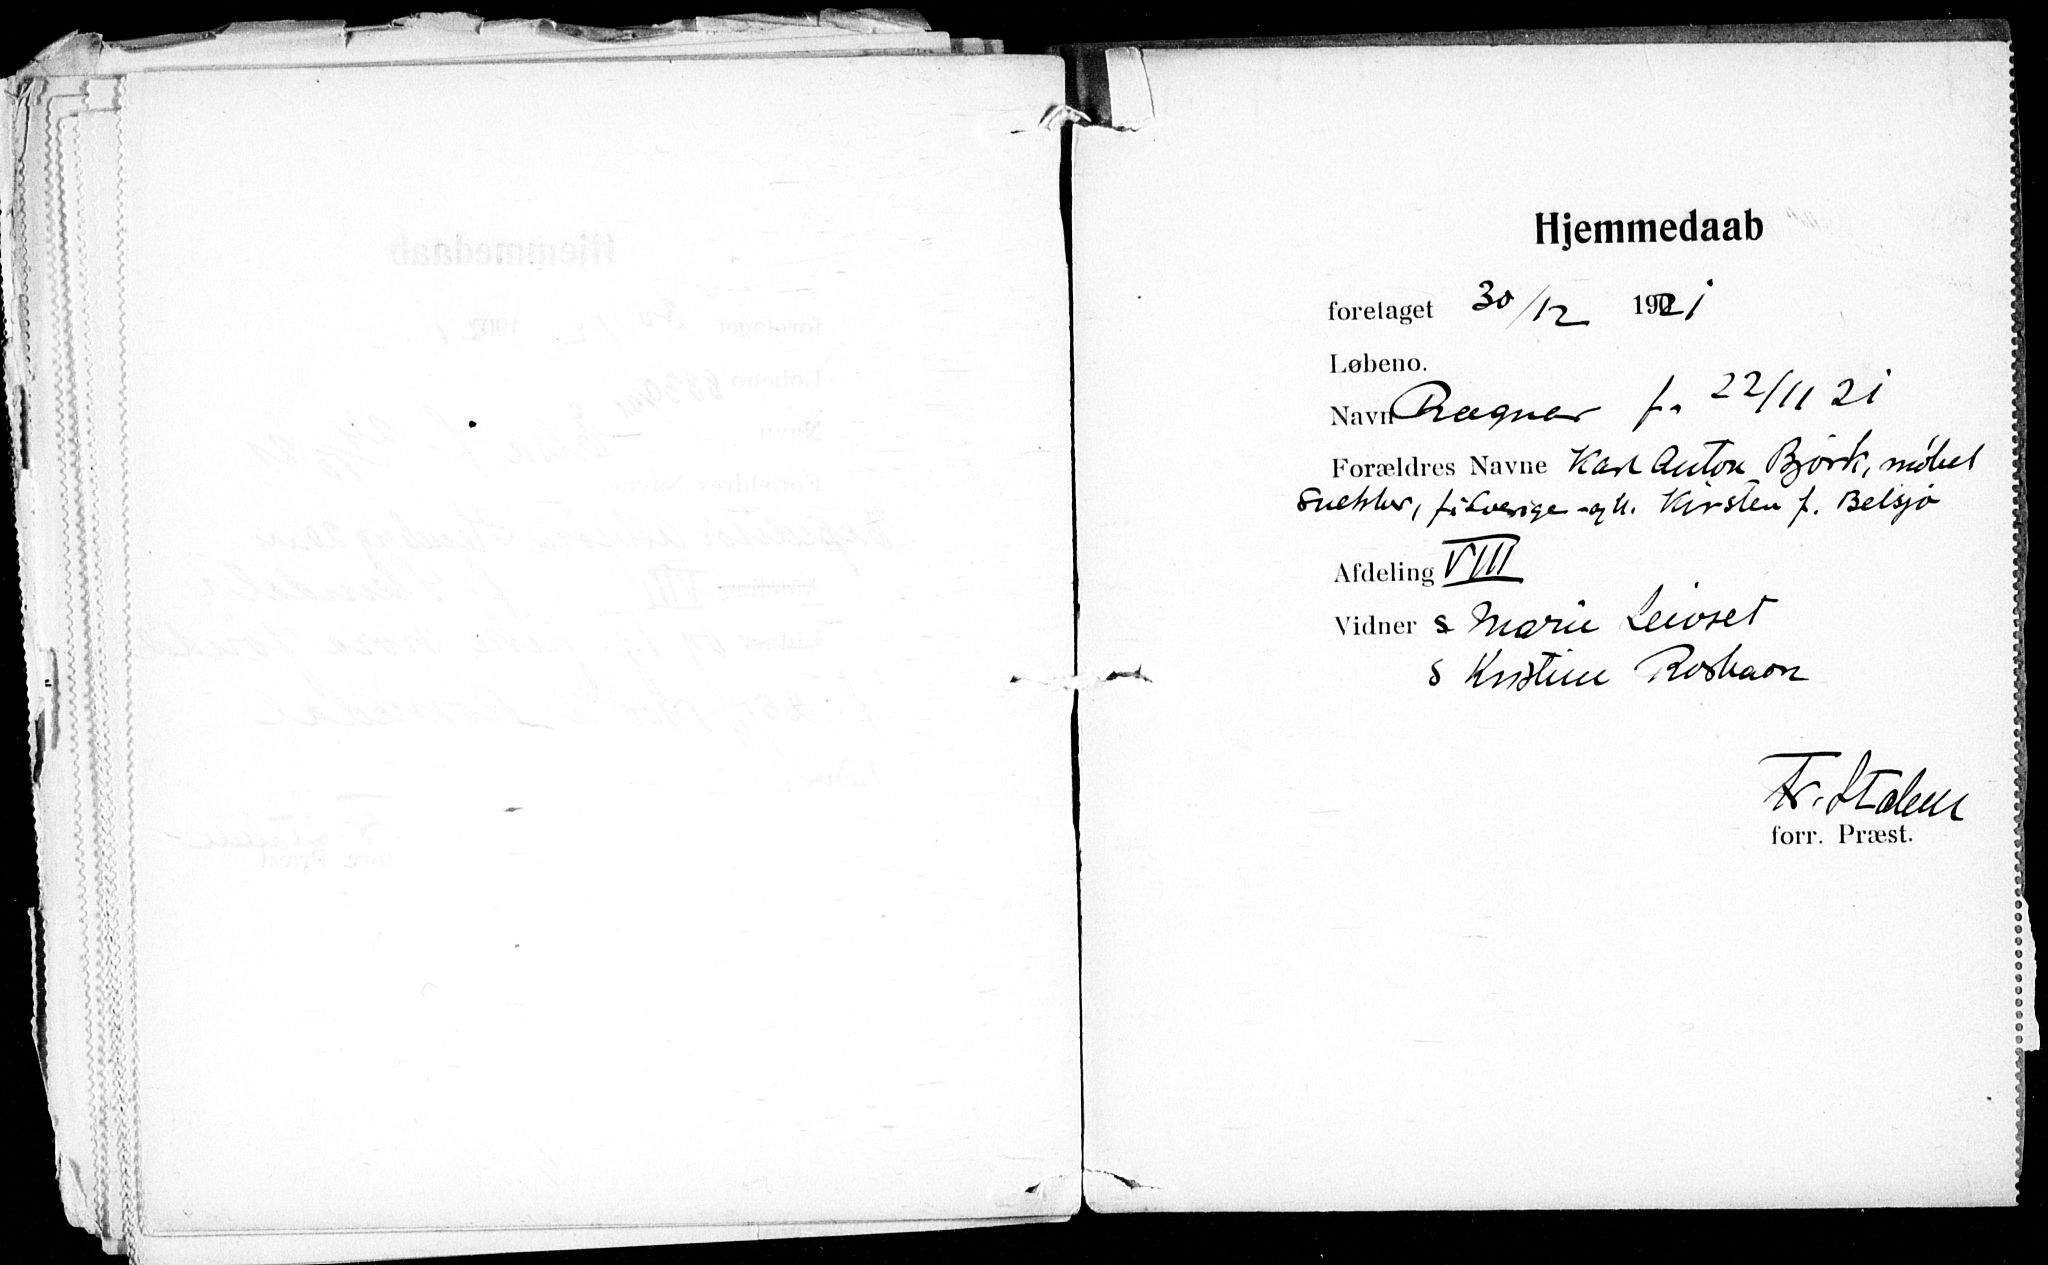 Hjemmedaab
foretaget 30/12 1921
Løbeno.
Navn Ragnar f. 22/11 21
Forældres Navne Karl Anton Björk, møbel
snekker, f. i Sverige og h. Kirsten f. Belsjø
Afdeling VIII
Vidner S Marie Leivset
S Kristine
Fr. Stalem
forr. Præst.